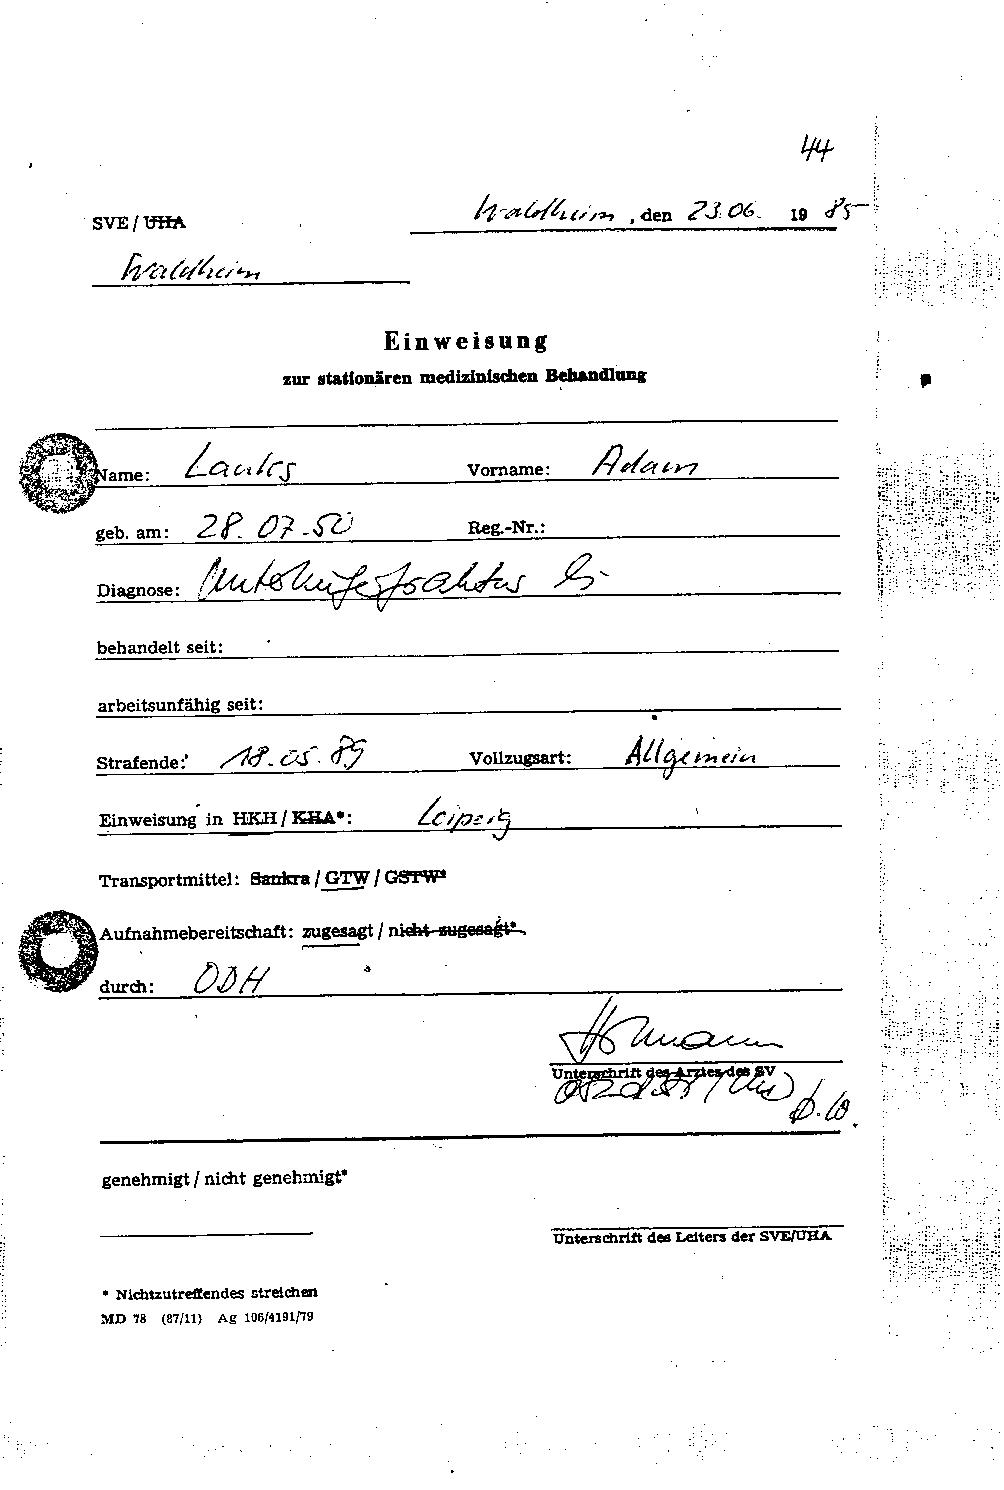 44
Waldheim, den 23.06. 19 85
SVE / UHA
Waldheim
Einweisung
zur stationären medizinischen Behandlung
Name: Lauks Vorname: Adam
geb. am: 28.07.50 Reg.-Nr.:
Diagnose: li
behandelt seit:
arbeitsunfähig seit:
Strafende: 18.05.89 Vollzugsart: Allgemein
Einweisung in HKH / KHA*: Leipzig
Transportmittel: Sankra / GTW / GSTW*
Aufnahmebereitschaft: zugesagt / nicht zugesagt*
durch: ODH
Unterschrift des Arztes des SV
genehmigt / nicht genehmigt*
Unterschrift des Leiters der SVE/UHA
* Nichtzutreffendes streichen
MD 78 (87/11) Ag 106/4191/79